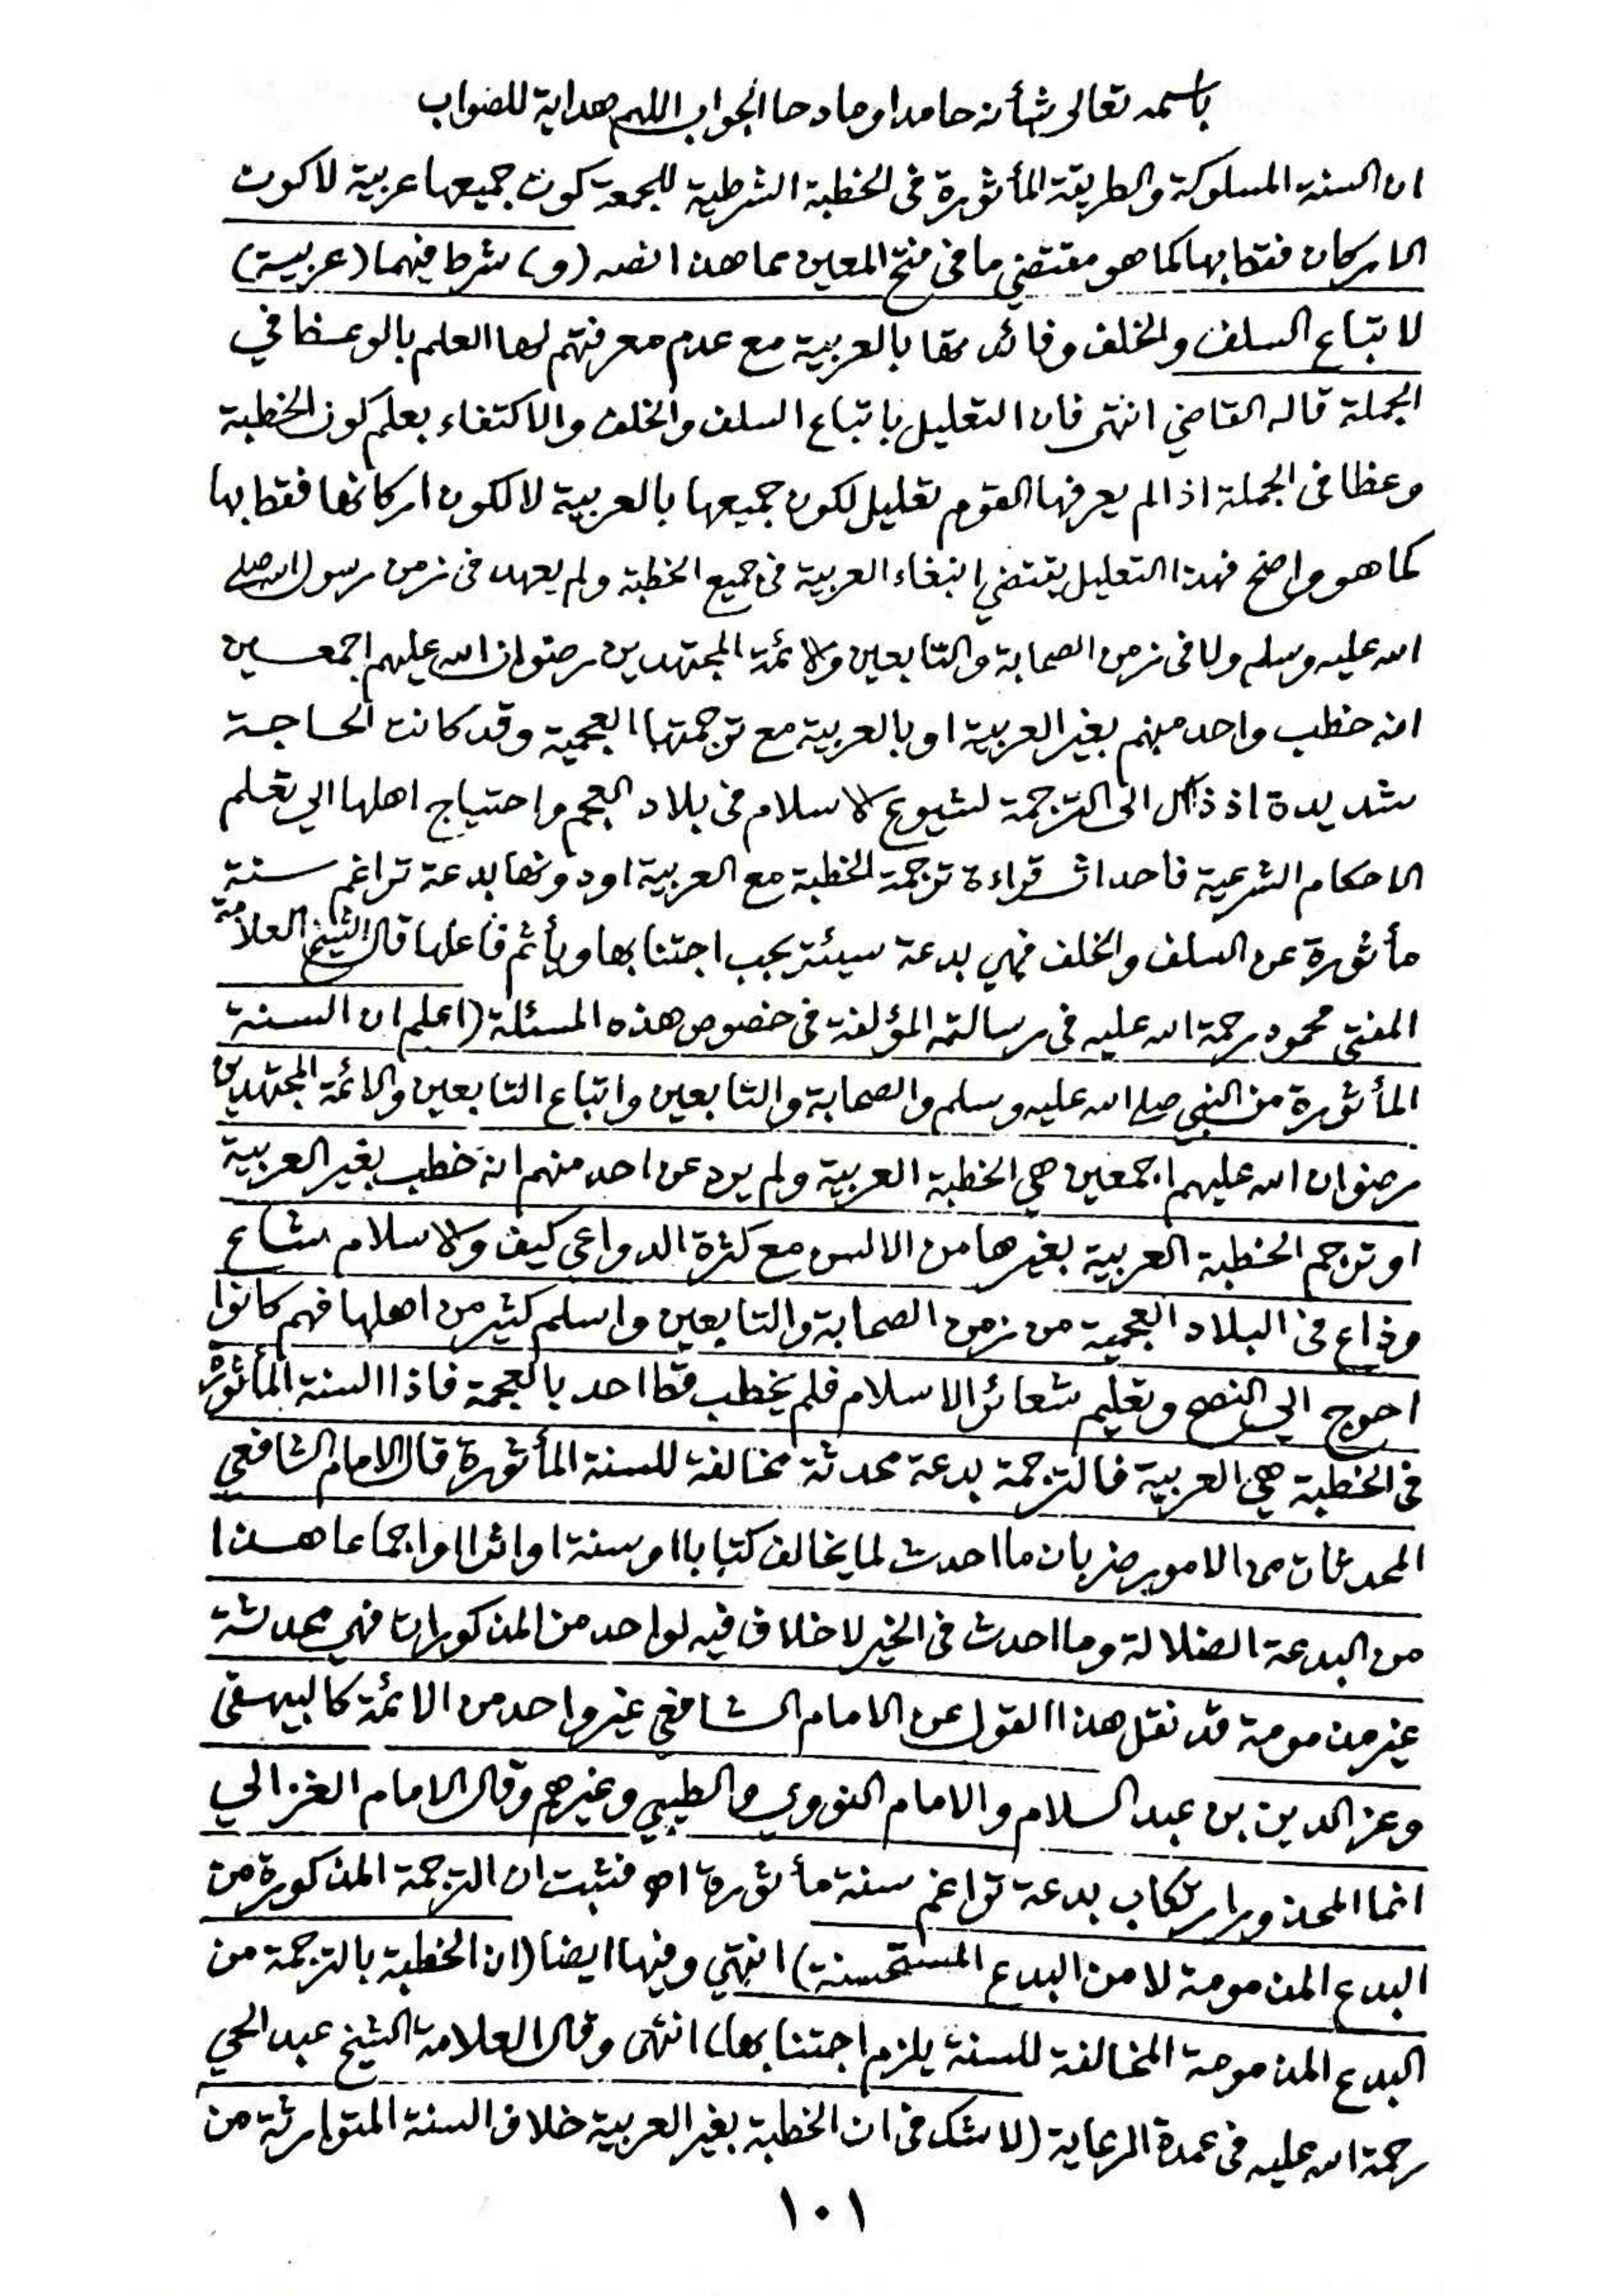 باسمه تعالى شأنه حامدا ومادحا الجواب اللهم هداية للصواب
ان السنة المسلوكة والطريقة المأثورة فى الخطبة الشرطية للجمعة كون جميعها عربية لا كون
الاركان فقط بها كما هو مقتضي ما فى فتح المعين مما هذا نصه (و) شرط فيهما (عربية)
لاتباع السلف والخلف وفائدتها بالعربية مع عدم معرفتهم لها العلم بالوعظ في
الجملة قاله القاضي انتهى فان التعليل باتباع السلف والخلف والاكتفاء بعلم كون الخطبة
وعظا فى الجملة اذا لم يعرفها القوم تعليل لكون جميعها بالعربية لا لكون اركانها فقط بها
كما هو واضح فهذا التعليل يقتضي ابتغاء العربية فى جميع الخطبة ولم يعهد فى زمن رسول الله صلى
الله عليه وسلم ولا فى زمن الصحابة والتابعين والائمة المجتهدين رضوان الله عليهم اجمعين
انه خطب واحد منهم بغير العربية او بالعربية مع ترجمتها العجمية وقد كانت الحاجة
شديدة اذ ذاك الى الترجمة لشيوع الاسلام فى بلاد العجم واحتياج اهلها الي تعلم
الاحكام الشرعية فاحداث قراءة ترجمة الخطبة مع العربية او دونها بدعة تراغم سنة
مأثورة عن السلف والخلف فهي بدعة سيئة يجب اجتنابها ويأثم فاعلها قال الشيخ العلامة
المفتى محمود رحمة الله عليه فى رسالته المؤلفة فى خصوص هذه المسئلة (اعلم ان السنة
المأثورة من النبي صلى الله عليه وسلم والصحابة والتابعين واتباع التابعين والائمة المجتهدين
رضوان الله عليهم اجمعين هي الخطبة العربية ولم يرد عن احد منهم انه خطب بغير العربية
او ترجم الخطبة العربية بغيرها من الالسن مع كثرة الدواعى كيف والاسلام شاع
وذاع فى البلاد العجمية من زمن الصحابة والتابعين واسلم كثير من اهلها فهم كانوا
احوج الي النصح وتعليم شعائر الاسلام فلم يخطب قط احد بالعجمة فاذا السنة المأثورة
فى الخطبة هي العربية فالترجمة بدعة محدثة مخالفة للسنة المأثورة قال الامام الشافعي
المحدثات من الامور ضربان ما احدث لما يخالف كتابا او سنة او اثرا او اجماعا هذا
من البدعة الضلالة وما احدث فى الخير لا خلاف فيه لواحد من المذكورات فهي محدثة
غير مذمومة قد نقل هذا القول عن الامام الشافعي غير واحد من الائمة كالبيهقى
وعز الدين بن عبد السلام والامام النووي والطيبي وغيرهم وقال الامام الغزالي
انما المحذور ارتكاب بدعة تراغم سنة مأثورة اه فثبت ان الترجمة المذكورة من
البدع المذمومة لا من البدع المستحسنة) انتهي وفيها ايضا (ان الخطبة بالترجمة من
البدع المذمومة المخالفة للسنة يلزم اجتنابها) انتهى وقال العلامة الشيخ عبد الحي
رحمة الله عليه فى عمدة الرعاية (لا شك فى ان الخطبة بغير العربية خلاف السنة المتوارثة من
١٠١